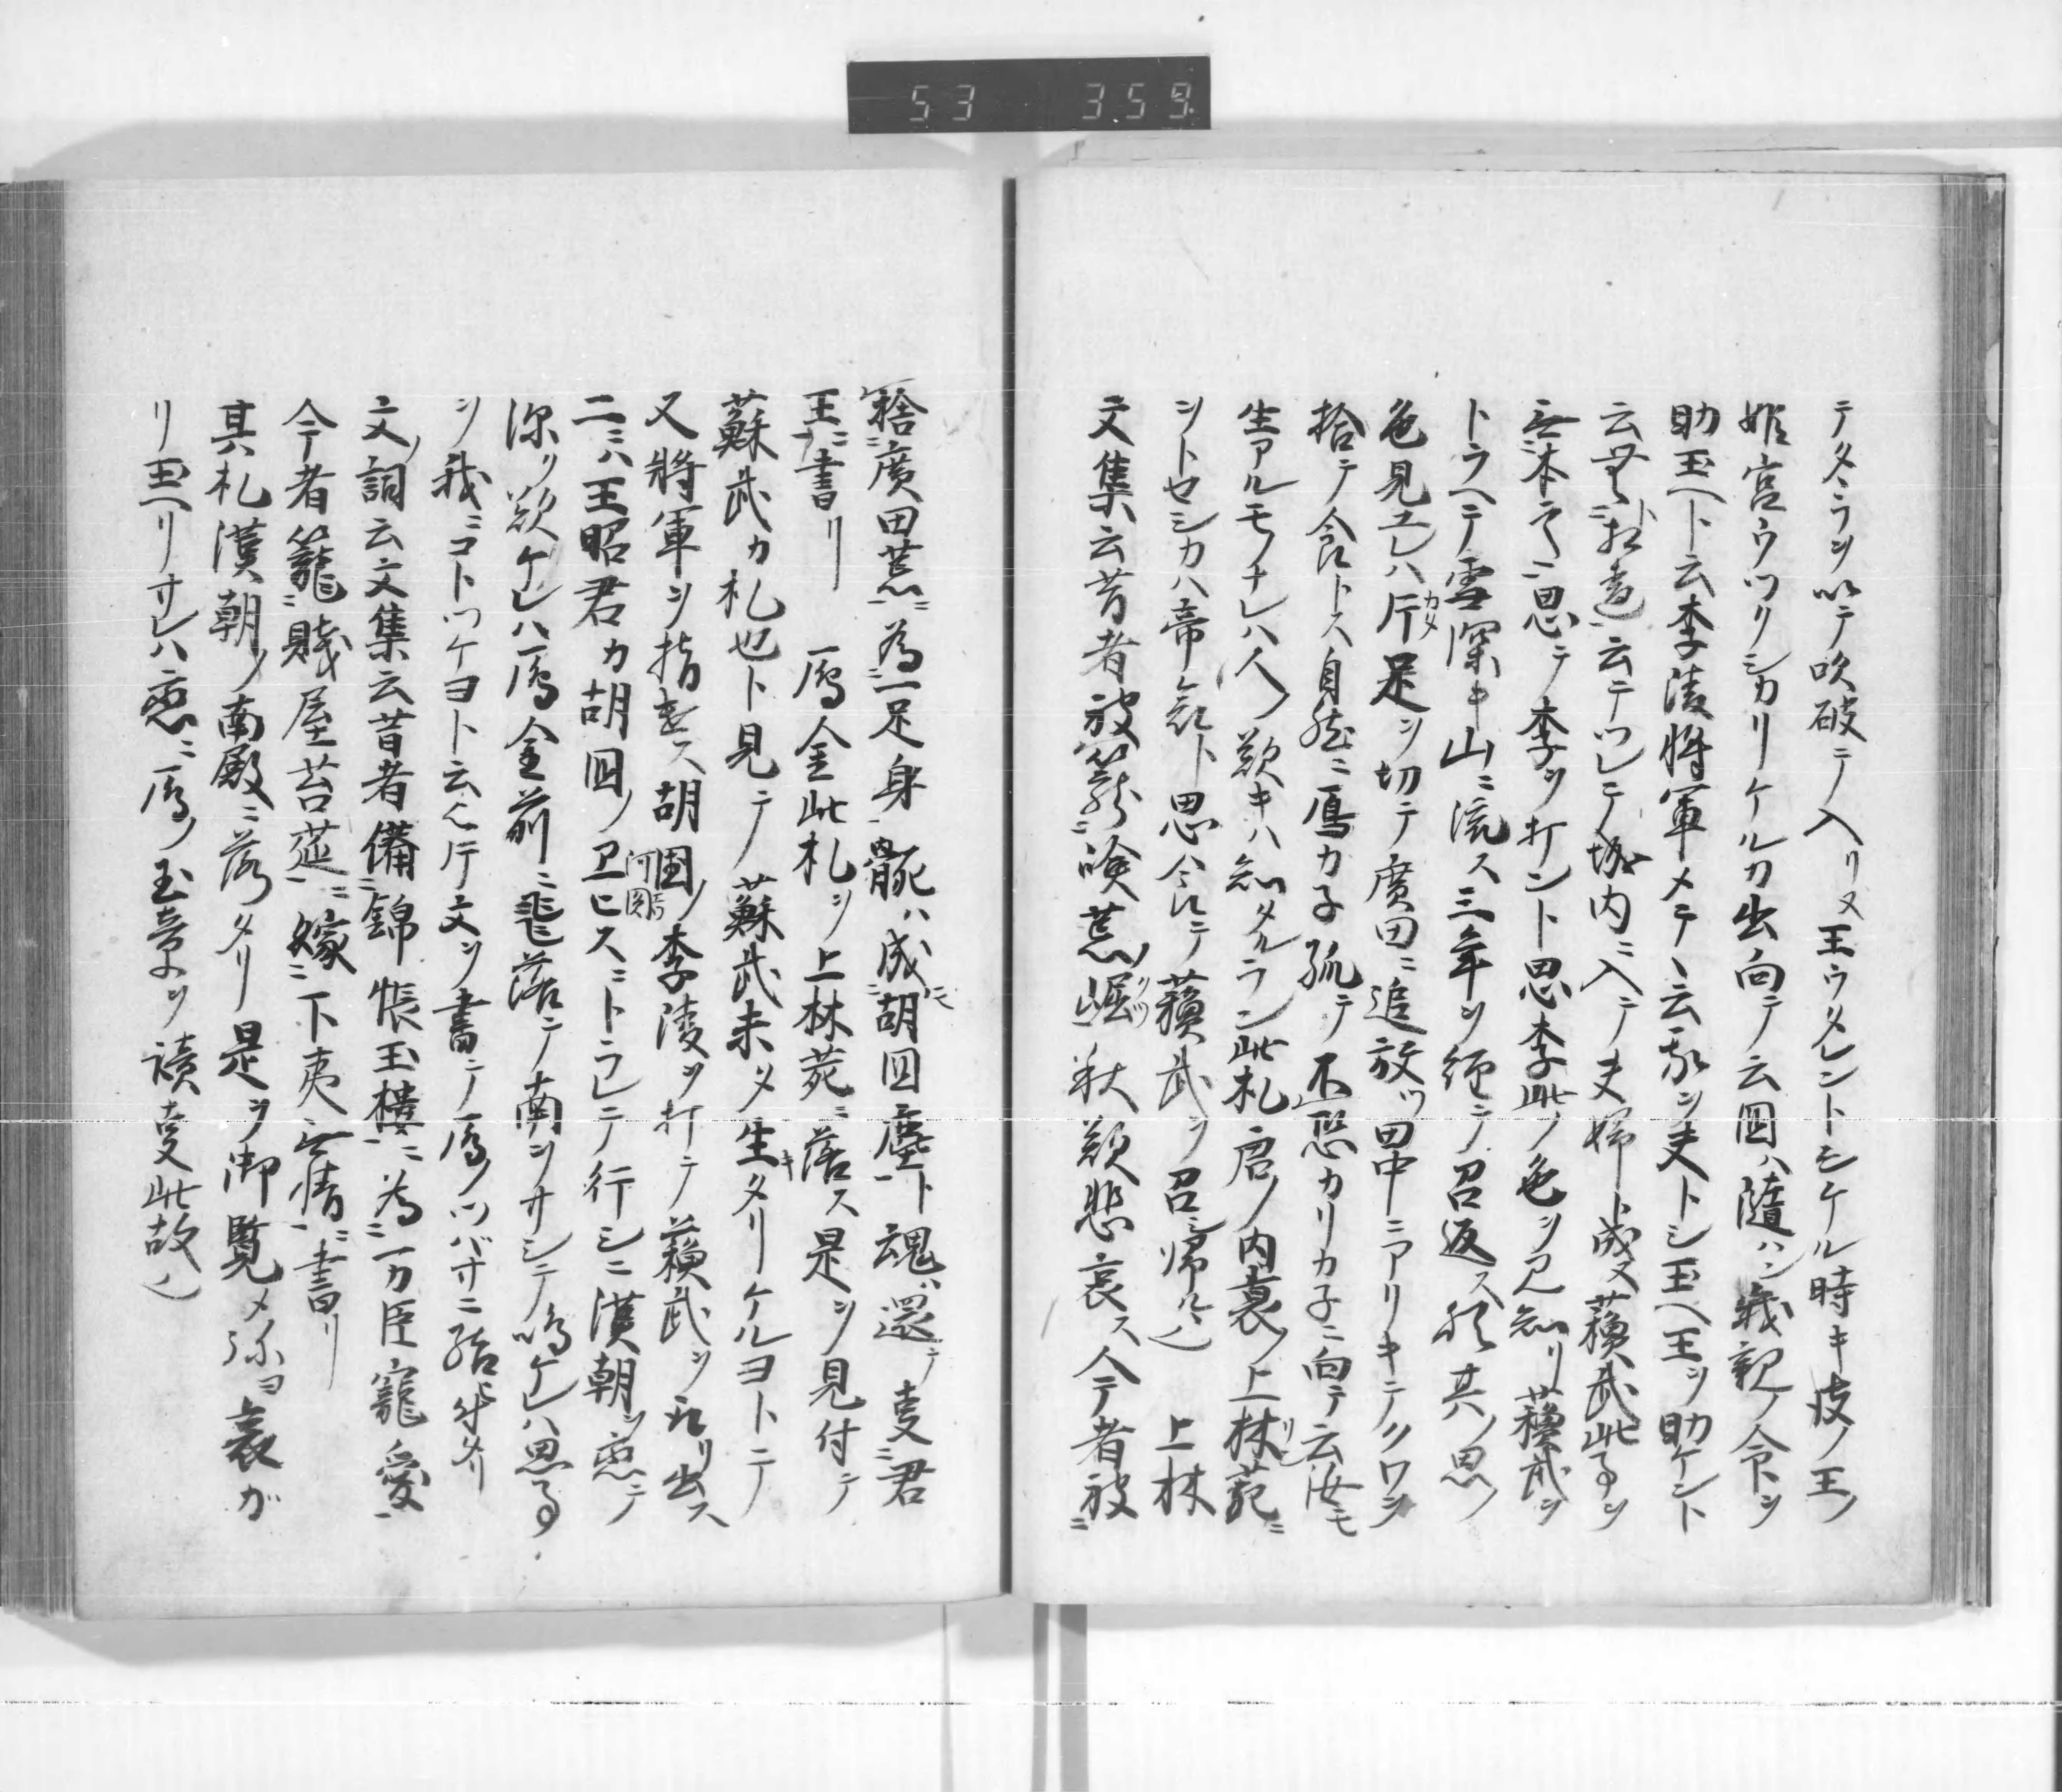 53 359
テタヽラヲ以テ吹破テ入リヌ王ウタレントシケル時キ彼ノ王ノ
姫宮ウツクシカリケルカ出向テ云国ハ随ハン我親ノ命ヲ
助玉ヘト云李陵将軍メテヽ云我ヲ夫トシ玉ヘ王ヲ助ケント
云テツレテ城内ニ入テ夫婦ト成ヌ蘓武此事ヲ
思テ李ヲ打ント思李此ノ色ヲ見知リ蘓武ヲ
トラヘテ雪深キ山ニ流ス三年ヲ経テ召返ス猶其ノ思ノ
色見エレハ片足ヲ切テ廣田ニ追放ツ田中ニアリキテクワヲ
拾テ食トス自然ニ鳫カ子孤テ不恐カリカ子ニ向テ云汝モ
生アルモノナレハ人ノ歎キハ知タルラン此札君ノ内裏ノ上林苑ニ
ヲトセシカハ帝哀ト思食テ蘓武ヲ召シ帰ル也 上林
文集云昔者被籠巌崛秋歎悲哀ス今テ者被
捨廣田荒為一足身骸ハ成胡国塵ト魂ハ還テ事君
王書リ 鳫金此札ヲ上林苑ニ落ス是ヲ見付テ
蘇武カ札也ト見テ蘇武未タ生タリケルヨトテ
又将軍ヲ指遣ス胡国ノ李陵ヲ打テ蘓武ヲ取リ出ス
二ニハ王昭君カ胡国ノエヒスニトラレテ行シニ漢朝ヲ恋テ
深リ歎ケレハ鳫金前ニ飛落テ南ヲサシテ鳴ケレハ思事
ヲ我ニコトツケヨト云ヘ片文ヲ書テ鳫ノツバサニ結ヒ付タリ
文ノ詞云文集云昔者備錦帳玉樓ニ為一方臣寵愛
今者籠賤屋苔莚嫁下夷無情書リ
其札漢朝ノ南殿ニ落タリ是ヲ御覧メ弥ヨ哀ガ
リ玉ヘリサレハ恋ニ鳫ノ玉章ヲ読事此故也